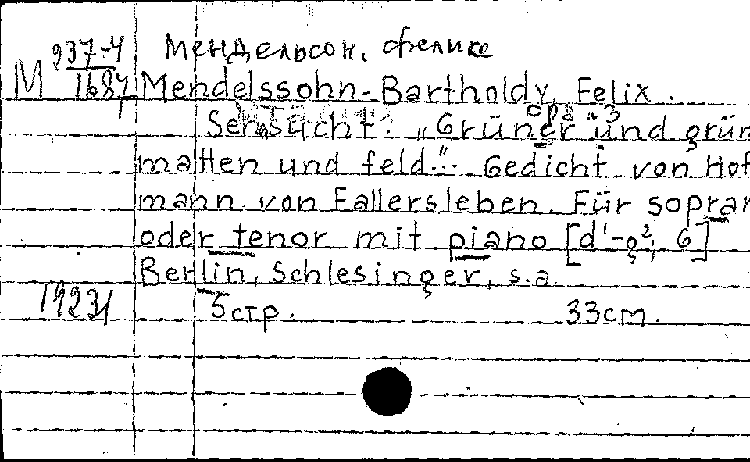 Мендельсон, Феликс
М 937-4
1687
Mendelssohn-Bartholdy, Felix.
ор. 3
Sehnsucht: „Grüner und grün
matten und feld." Gedicht von Hof
mann von Fallersleben. Für sopran
oder tenor mit piano [d¹-g², G]
Berlin, Schlesinger, s.a.
19231 5 стр. 33 cm.